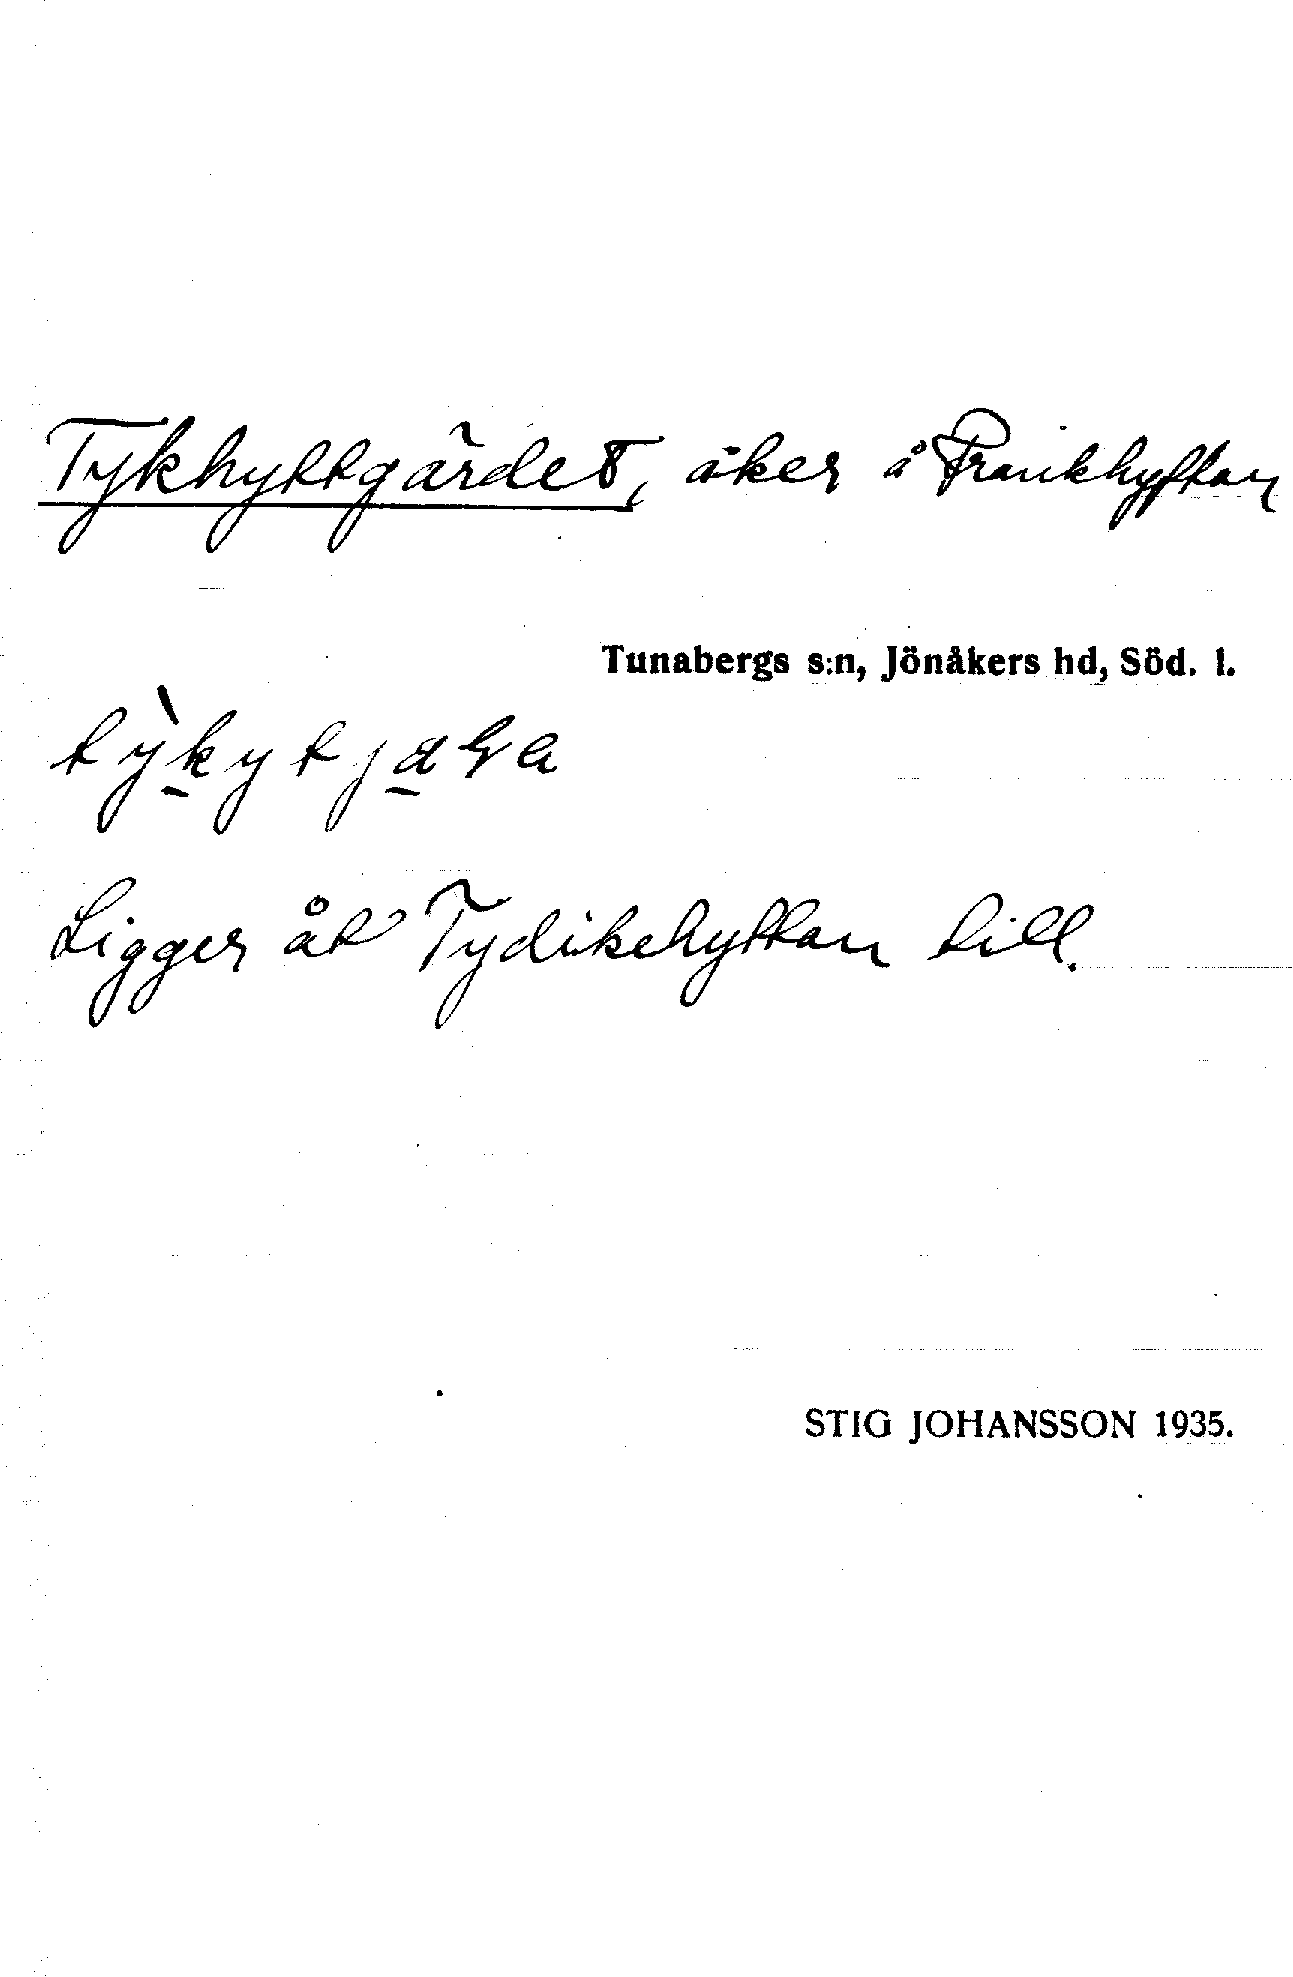 Tykhyttgärdet, åker å Frankhyttan
Tunabergs s:n, Jönåkers hd, Söd. l.
Ligger åt Tydikehyttan till.
STIG JOHANSSON 1935.